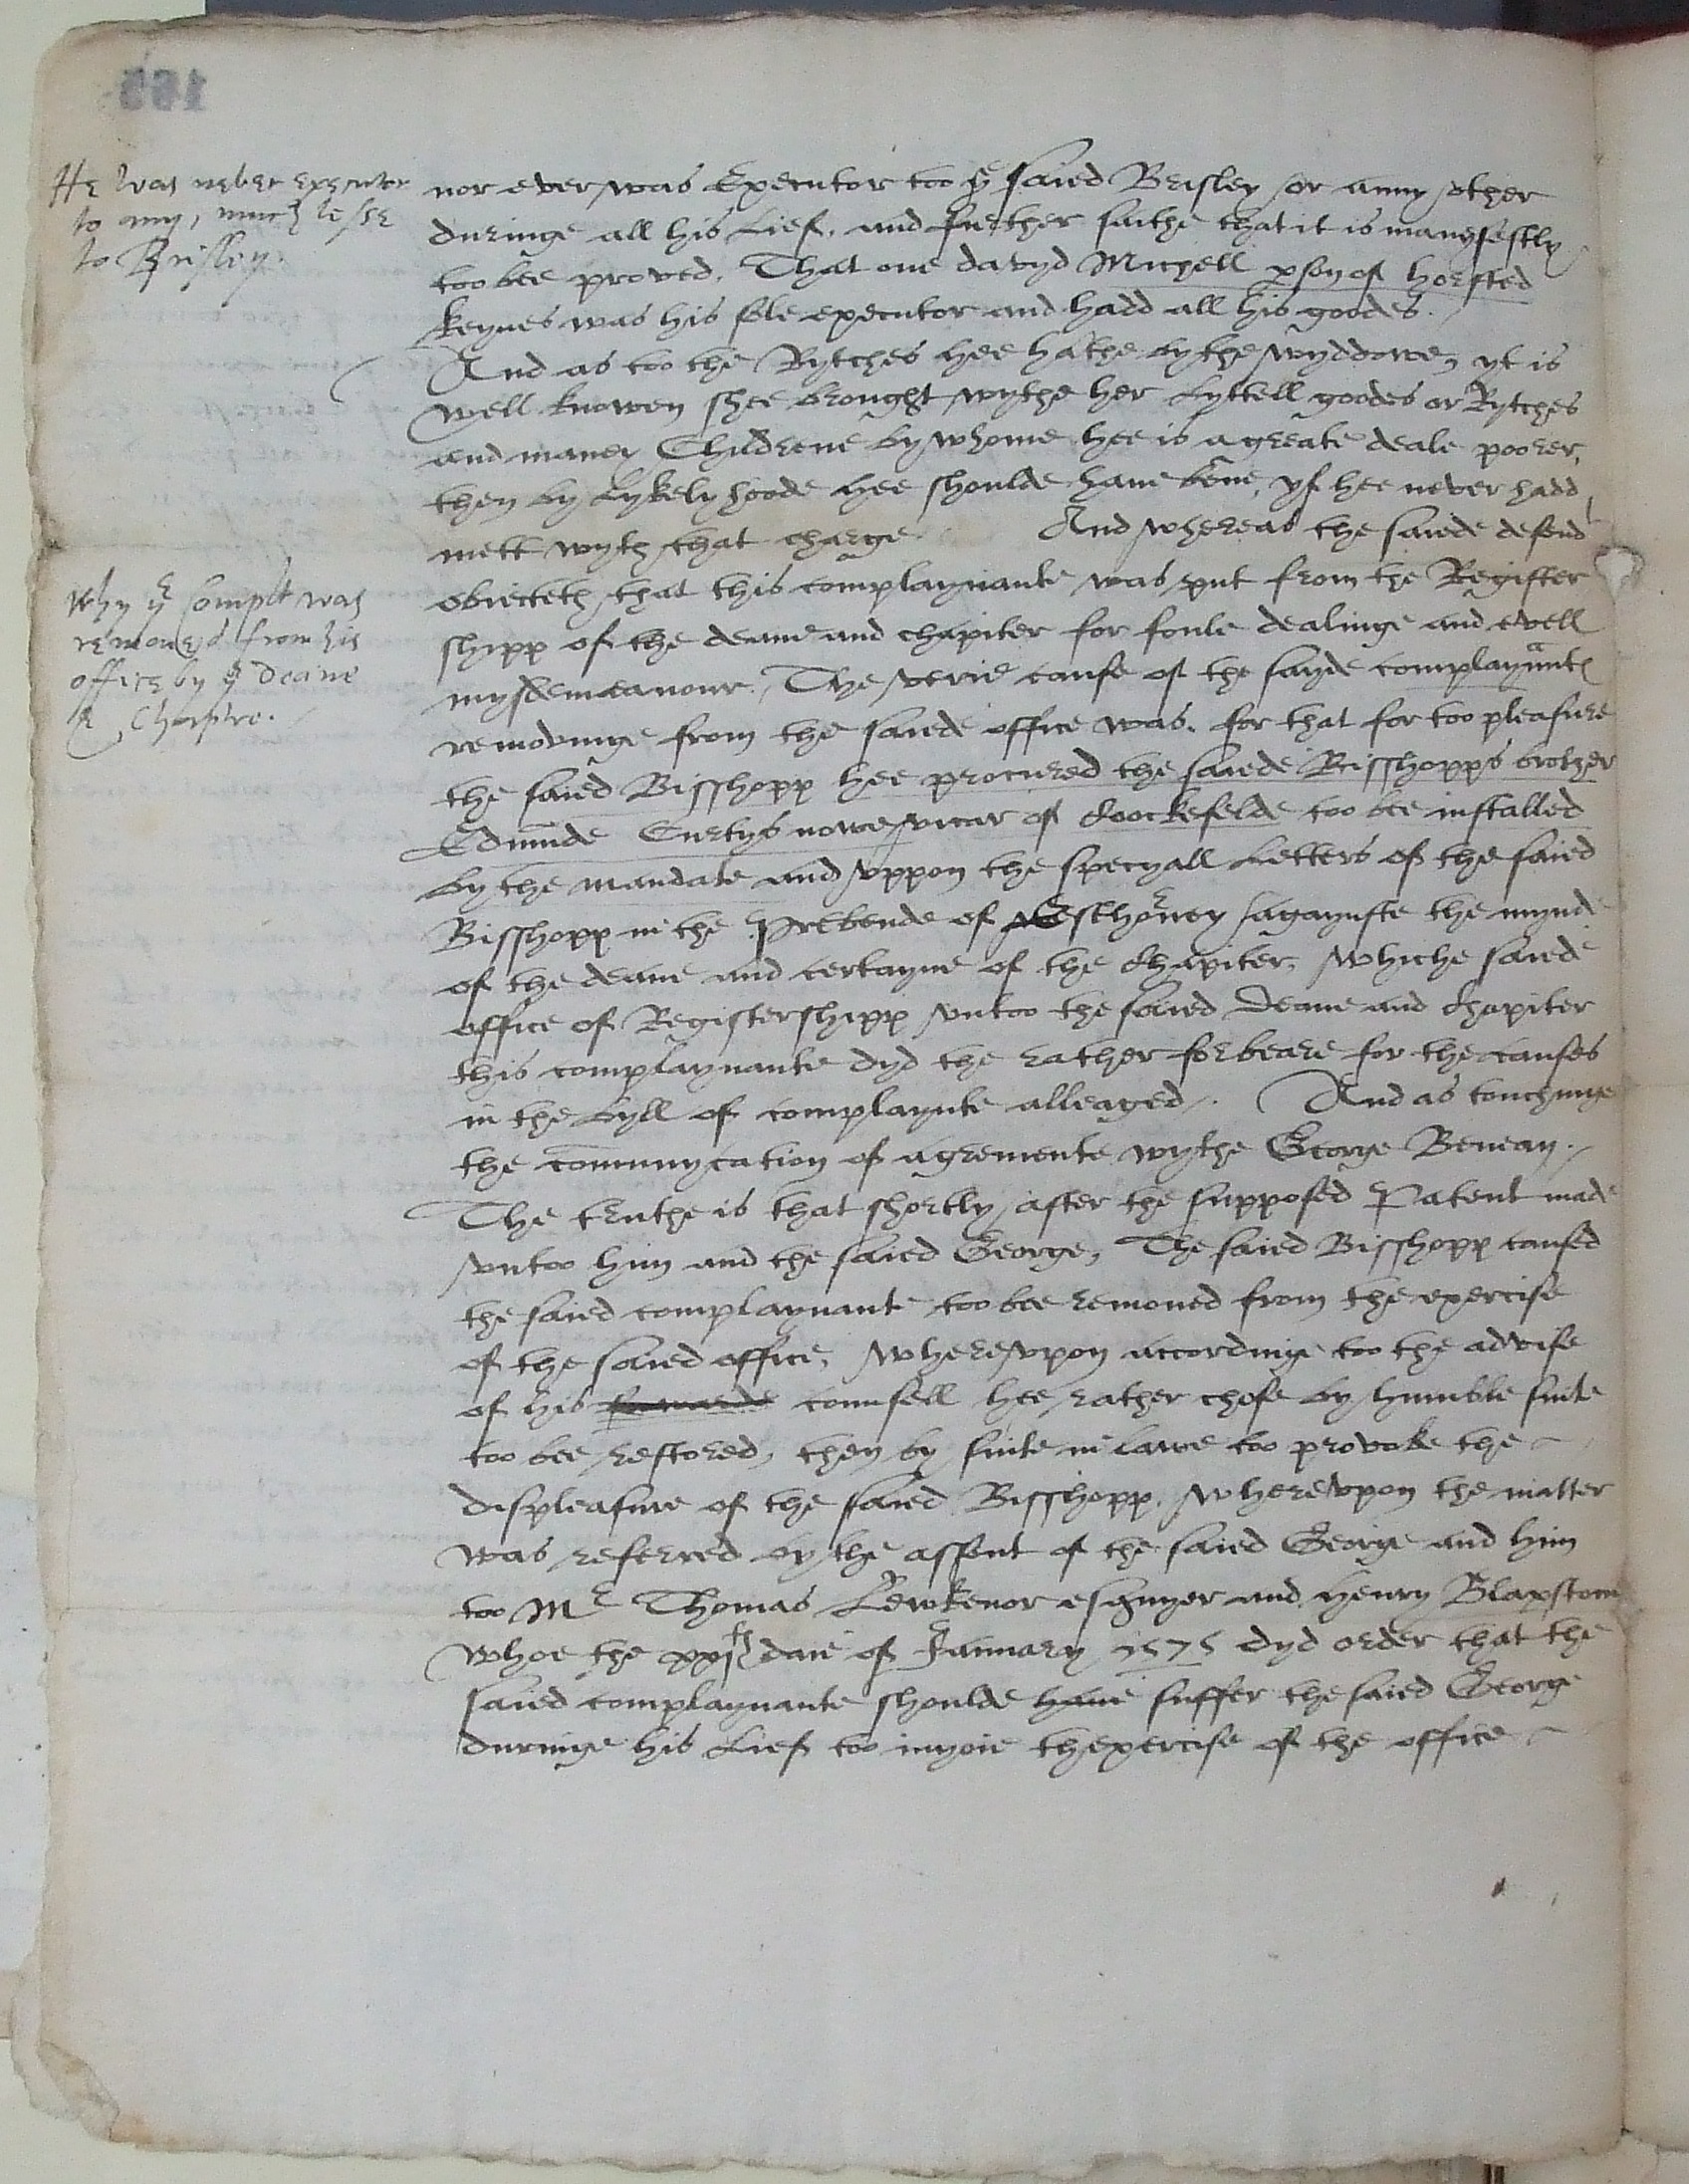 He was never executor
to any, much lesse
to Brisley.
nor ever was Executor too ye saied Brisley or anny other
duringe all his Lief, and further saithe that it is manyfestly
too bee proved, That one davyd Michell pson of horsted
keynes was his sole executor and hadd all his goodes.
And as too the Rytches hee hathe by the wyddowe, yt is
well knowen shee brought wythe her Lyttell goodes or Rytches
and maney Childrene by whome hee is a greate deale poorer,
then by Lykelyhoode hee shoulde have bene, yf hee never hadd
mett wyth that charge. And whereas the saiede defend
obiecteth that this complaynante was put from the Register
shipp of the deane and chapiter for foule dealinge and evell
mysdemeanour. The verie cause of the sayde complaynants
Why ye Complt was
removed from his
office by ye Deane
& Chapiter.
removinge from the saiede office was, for that for too pleasure
the saied Bisshopp hee procured the saiede Bisshopps brother
Edmunde Curtys nowe vicar of Coockefelde too bee installed
by the mandate and uppon the specyall Letters of the saied
Bisshopp in the Prebende of Esthorney agaynste the mynde
of the deane and certayne of the Chapiter, Whiche saiede
office of Registershipp untoo the saied Deane and Chapiter
this complaynante dyd the rather forbeare for the causes
in the byll of complaynte alleaged. And as touchinge
the communycation of agremente wythe George Benean.
The truthe is that shortly after the supposed Patent made
untoo him and the saied George, The saied Bisshopp caused
the saied complaynante too bee removed from the exercise
of the saied office, Whereupon accordinge too the advise
of his counsell hee rather chose by humble suite
too bee restored, then by suite in lawe too provoke the
displeasure of the saied Bisshopp. Whereupon the matter
was referred by the assent of the saied George and him
too Mr Thomas Lewkenor esquyer and Henry Blaxston
whoe the xxjth daie of January 1575 dyd order that the
saied complaynante shoulde have suffer the saied George
duringe his Lief too inyoie thexercise of the office
165